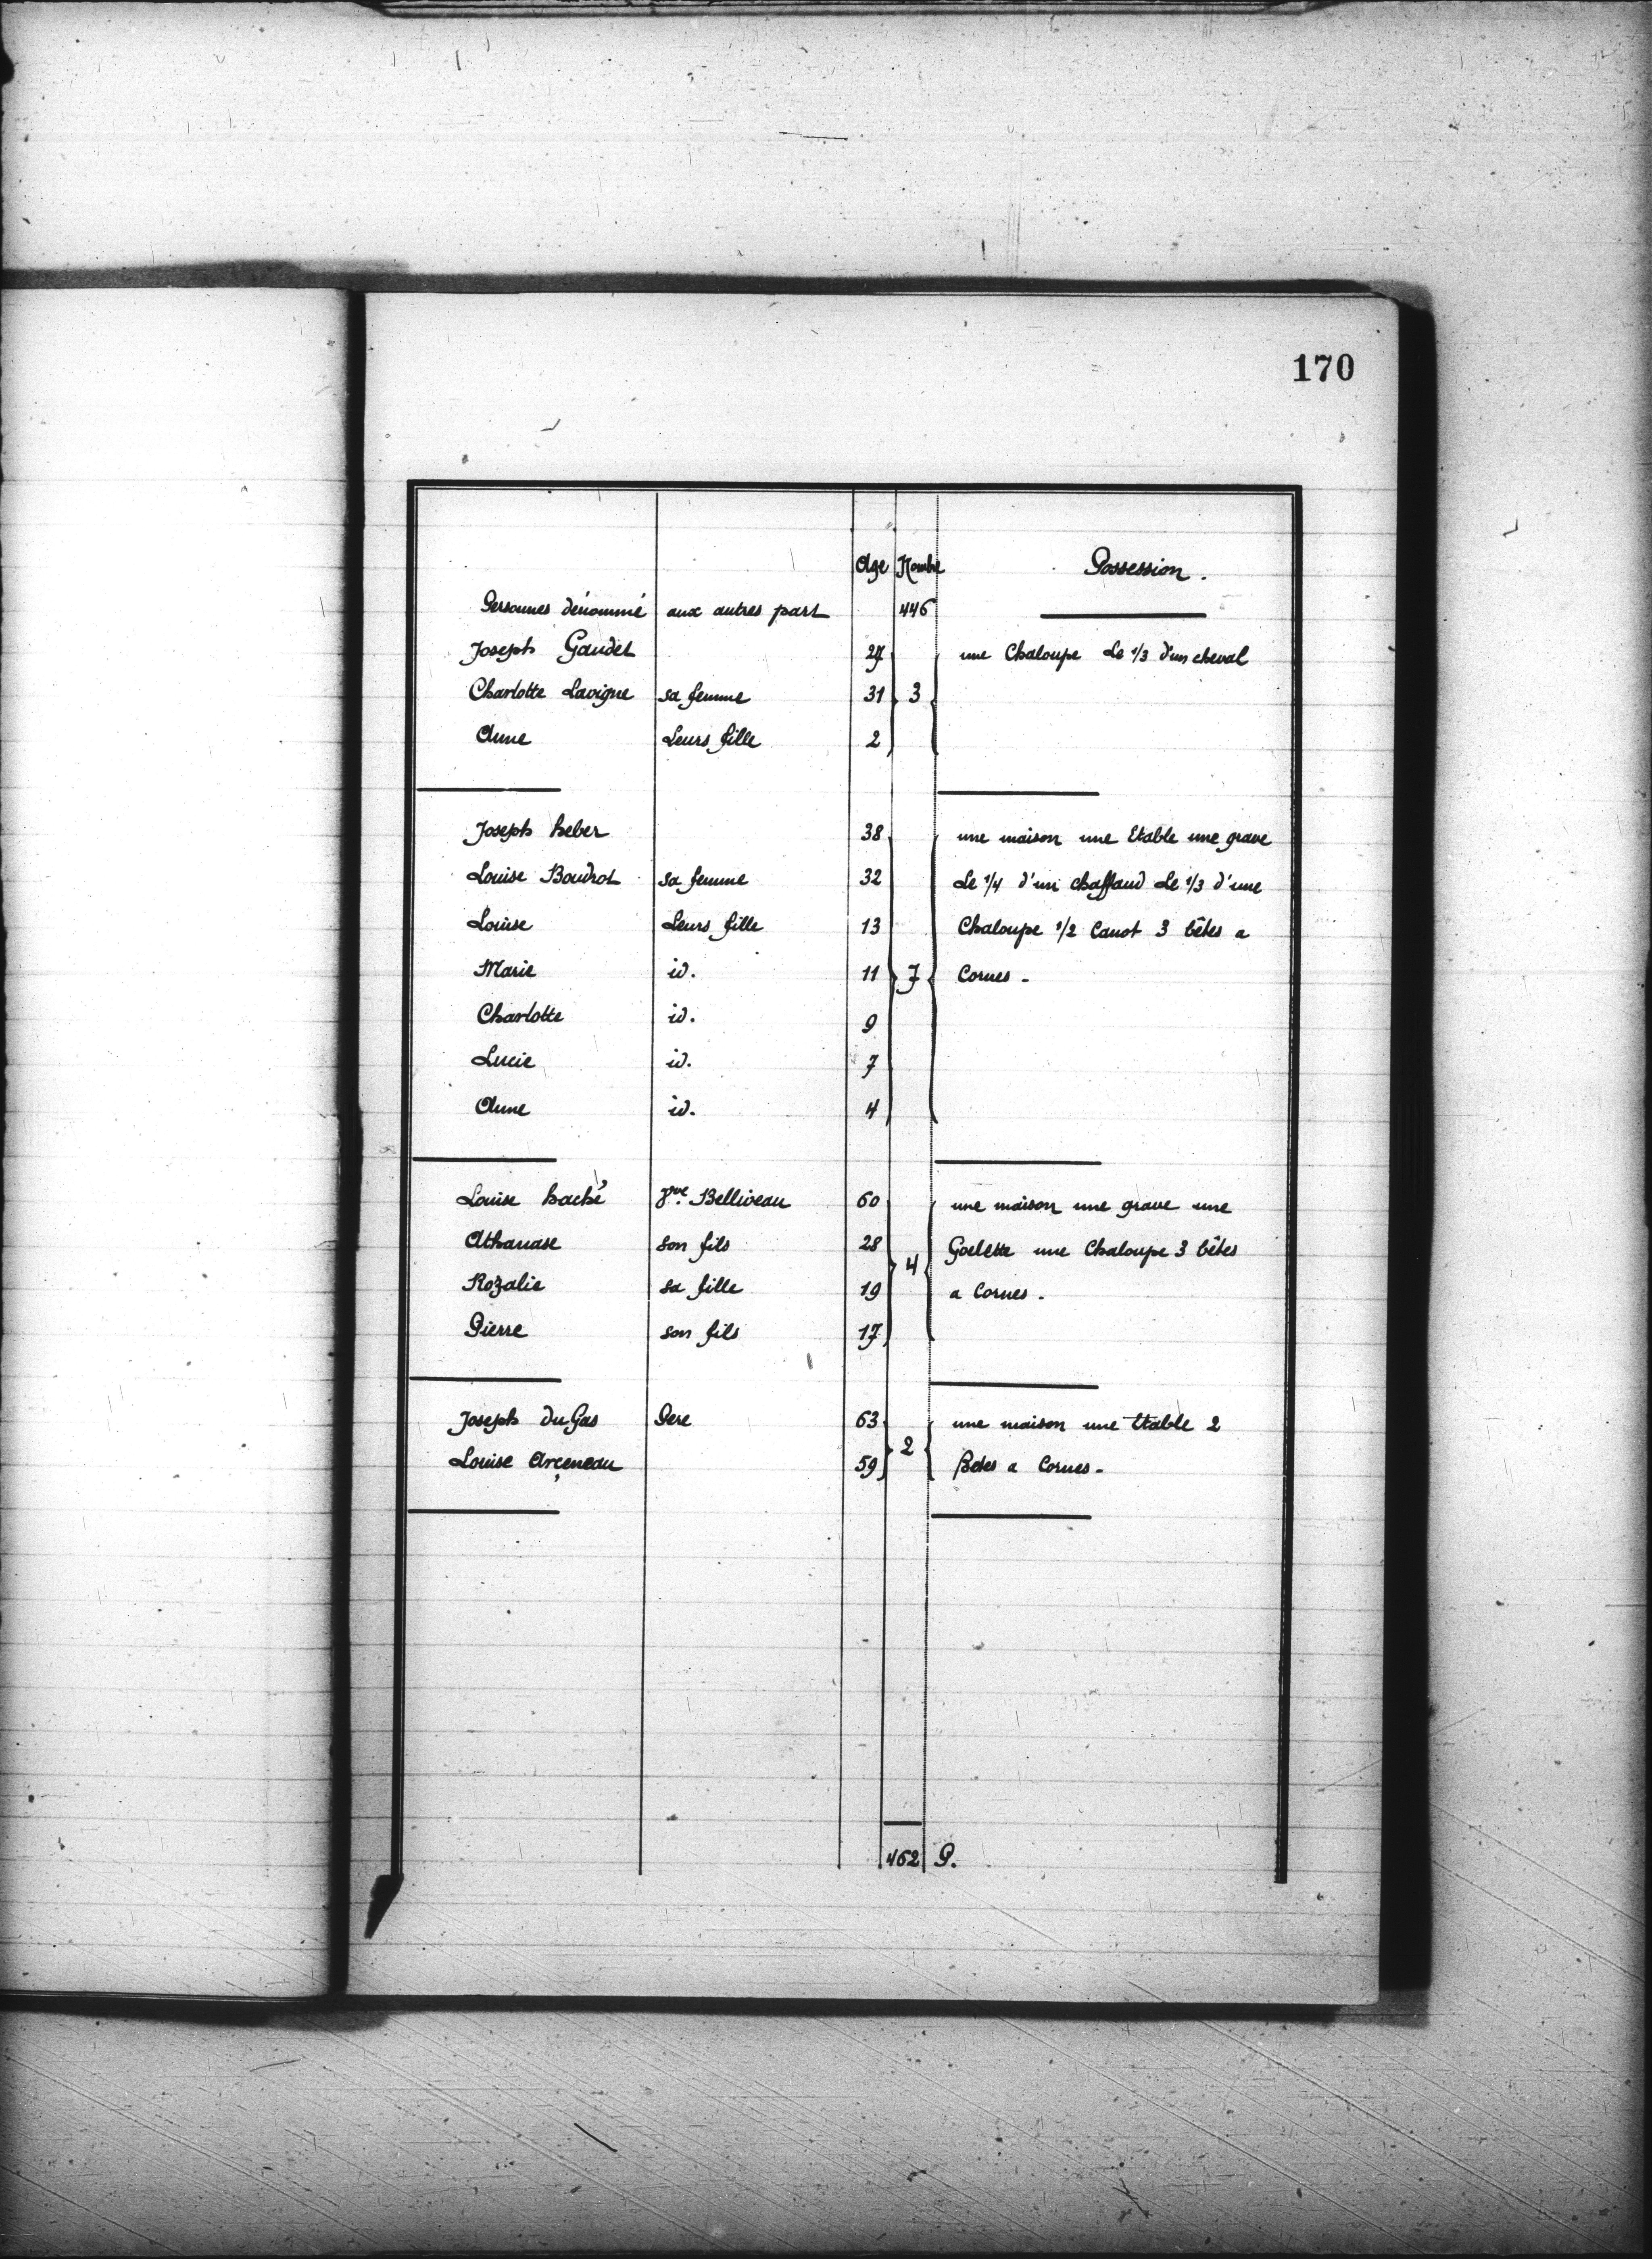 170
Age Nombre Possession.
Personnes dénommé aux autres part 446
Joseph Gaudet 27 une Chaloupe Le 1/3 d'un cheval
Charlotte Lavigne sa femme 31 3
Anne Leurs fille 2
Joseph heber 38 une maison une Etable une grave
Louise Boudrot sa femme 32 Le 1/4 d'un chaffaud Le 1/3 d'une
Louise Leurs fille 13 Chaloupe 1/2 Canot 3 bêtes a
Marie id. 11 7 Cornes -
Charlotte id. 9
Lucie id. 7
Anne id. 4
Louise haché Vve Belliveau 60 une maison une grave une
Athanase son fils 28 4 Goelette une Chaloupe 3 bêtes
Rozalie sa fille 19 a Cornes -
Pierre son fils 17
Joseph duGas Pere 63 une maison une Etable 2
Louise Arçeneau 59 2 Betes a Cornes -
462 P.